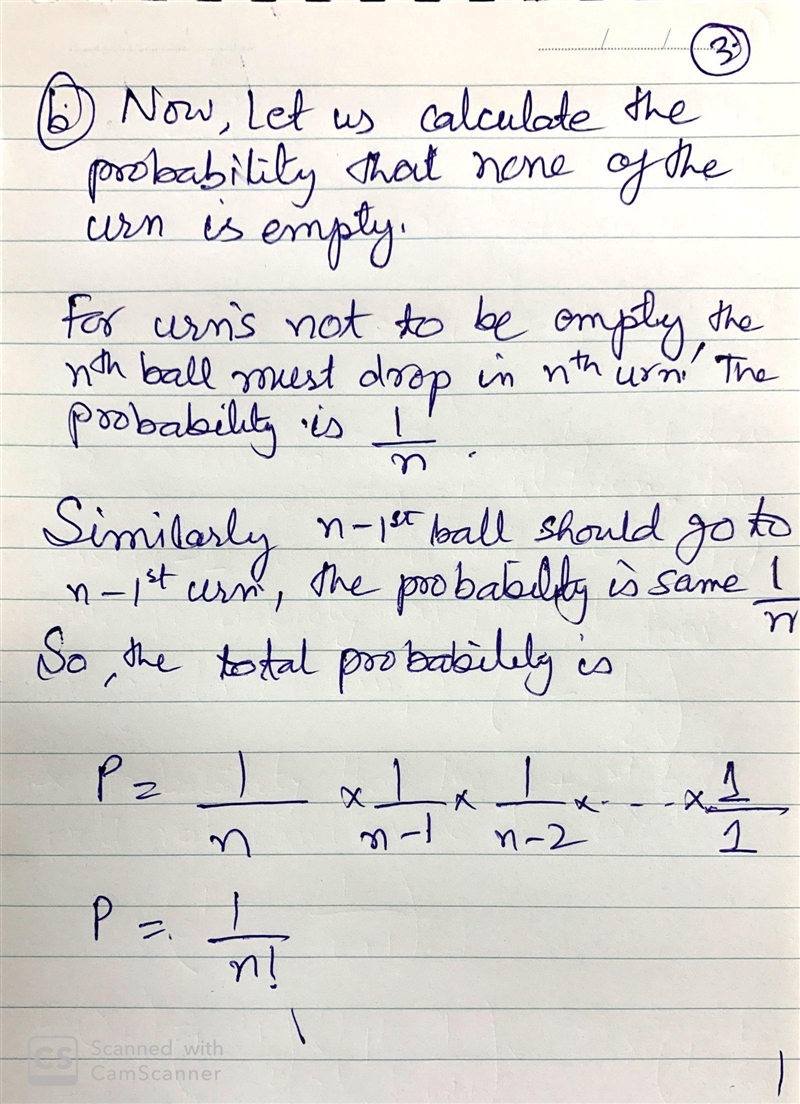 3.
b. Now, Let us calculate the
probability that none of the
urn is empty.
For urn's not to be empty, the
nth ball must drop in nth urn. The
probability is 1/n.
Similarly n-1st ball should go to
n-1st urn, the probability is same 1/n
So, the total probability is
P = 1/n × 1/n-1 × 1/n-2 × ---- × 1/1
P = 1/n!
CS Scanned with
CamScanner